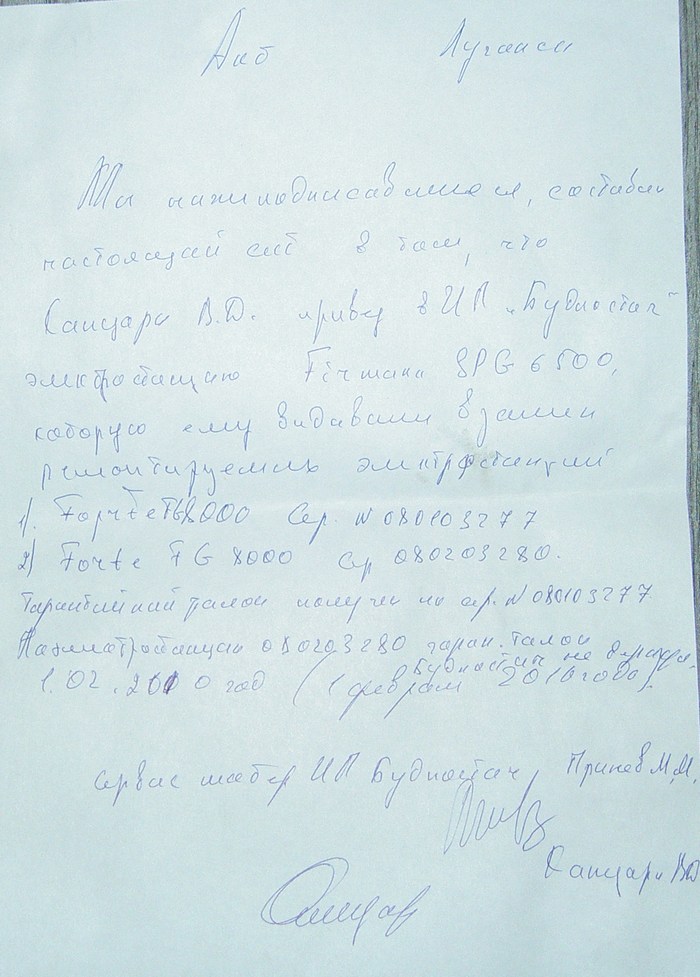 Акт Луганск
Мы нижеподписавшиеся, составили
настоящий акт в том, что
В.Д. привез в ИП „Будпостач"
электростанцию Firmann SPG 6500,
которую ему видавали взамен
ремонтируемых электростанций
1). Forte FG8000 Сер. N 080103277
2) Forte FG 8000 Сер 080203280.
Гарантийний талон получен на сер. N 080103277
На электростанции 080203280 гаран. талон
Будпостач не
1.02.2010 год (1 февраля 2010 года).
Сервис мастер ИП Будпостач М.М.
В.Д.